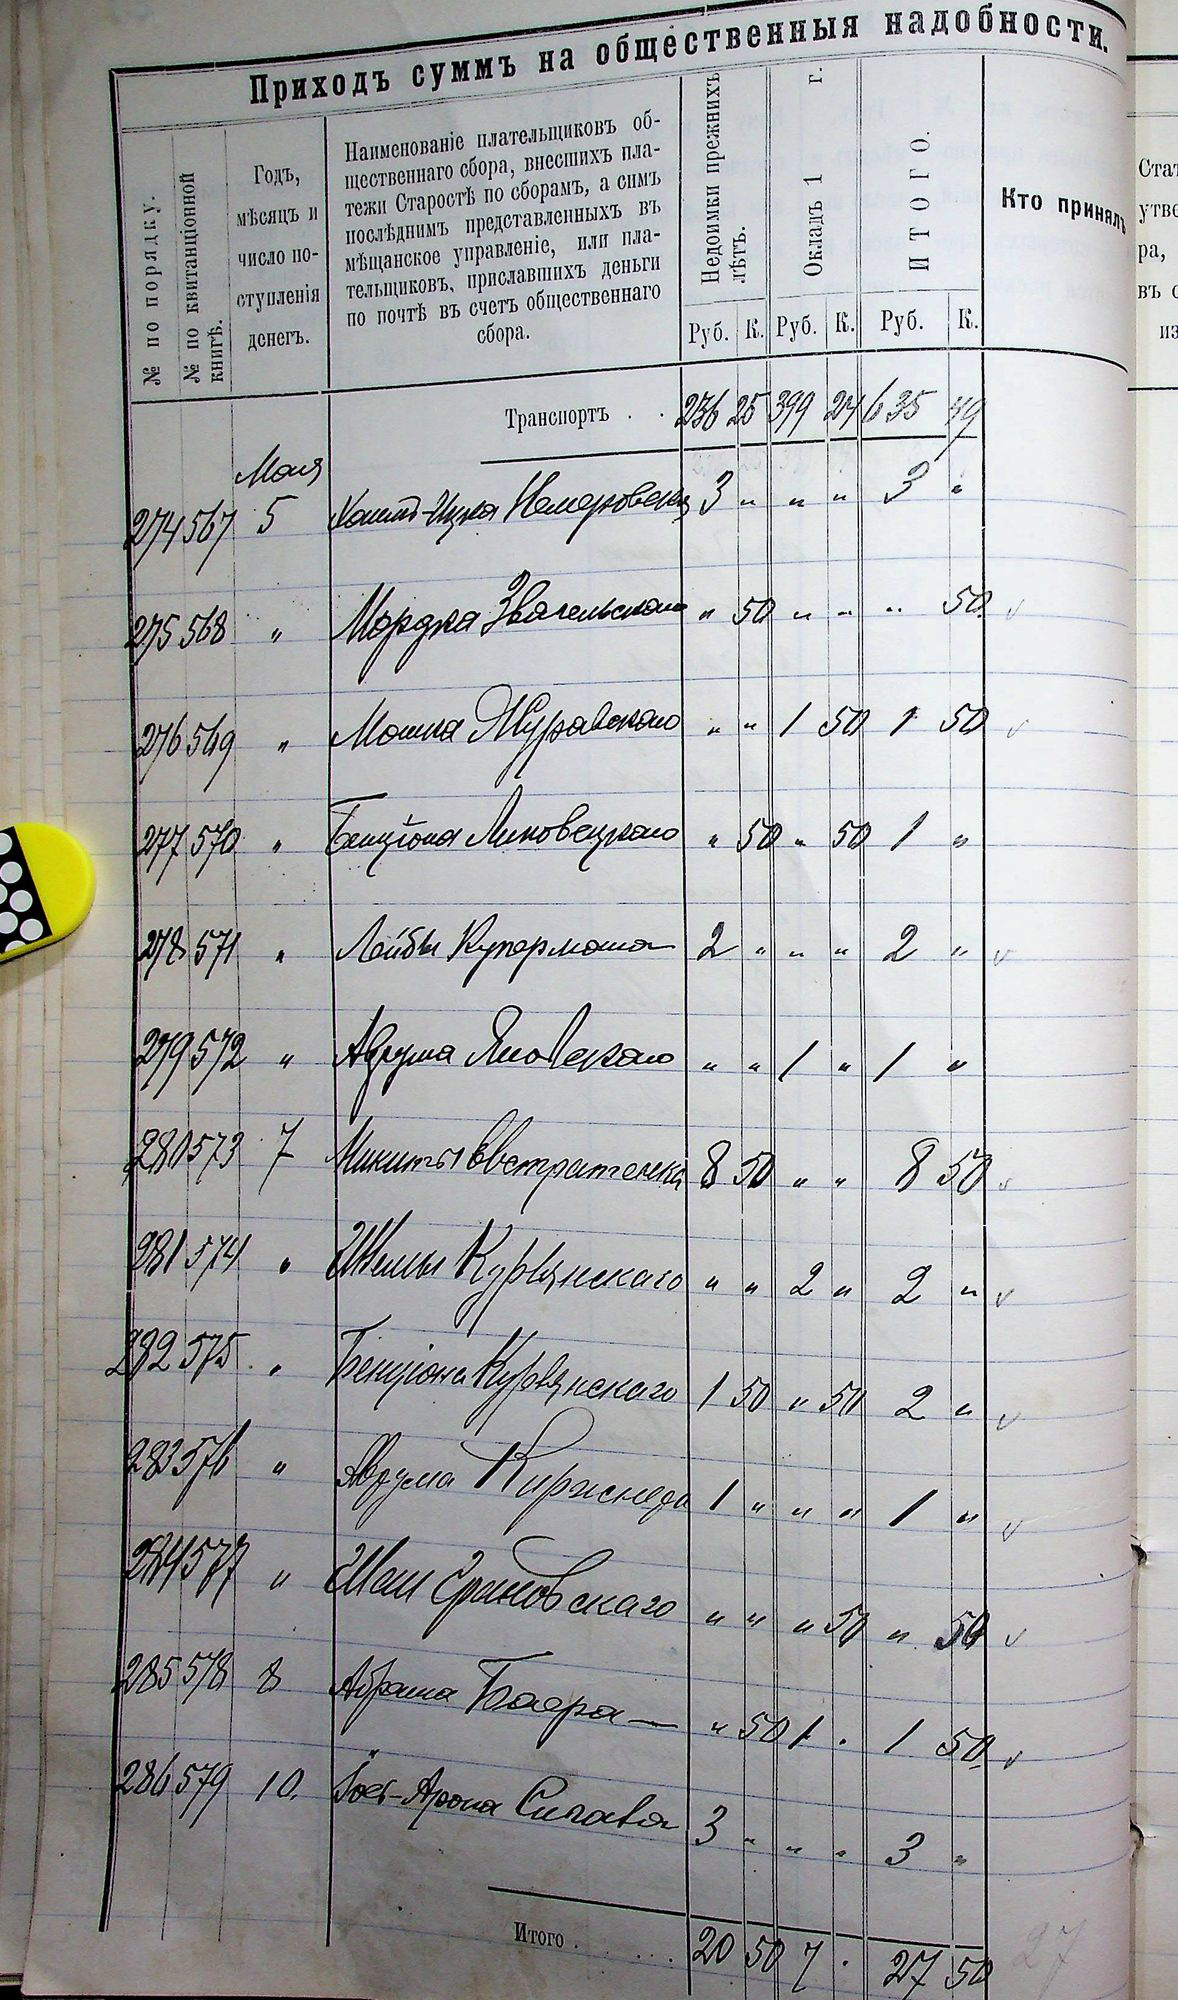 Приходъ суммъ на общественныя надобности.
№ по порядку.
№ по квитанціонной
книгѣ.
Годъ,
мѣсяцъ и
число по-
ступленія
денегъ.
Наименованіе плательщиковъ об-
щественнаго сбора, внесшихъ пла-
тежи Старостѣ по сборамъ, а симъ
послѣднимъ представленныхъ въ
мѣщанское управленіе, или пла-
тельщиковъ, приславшихъ деньги
по почтѣ въ счетъ общественнаго
сбора.
Недоимки прежнихъ
лѣтъ.
Окладъ 1 г.
ИТОГО.
Кто принялъ
Руб. К. Руб. К. Руб. К.
Транспортъ . . 236 25 399 24 635 49
Мая
274 567 5 Немеровск 3 „ „ „ 3 „
275 568 „ Мордка Звагельскаго „ 50 „ „ „ 50
276 569 „ Мошка Журавскаго „ „ 1 50 1 50
277 570 „ Бенціона Линовецкаго „ 50 „ 50 1 „
278 571 „ Лейбы Купермана 2 „ „ „ 2 „
279 572 „ Аврума Яновскаго „ „ 1 „ 1 „
280 573 7 Микиты Евстратенка 8 50 „ „ 8 50
281 574 „ Шлемы Курьянскаго „ „ 2 „ 2 „
282 575 „ Бенціона Курьянскаго 1 50 „ 50 2 „
283 576 „ Аврума Киржнера 1 „ „ „ 1 „
284 577 „ Шаи Грановскаго „ „ „ 50 „ 50
285 578 8 Абрама Баера „ 50 1 . 1 50
286 579 10. Арона Сигала 3 „ „ „ 3 „
Итого . . . . . 20 50 7 . 27 50
27
Стат
утве
ра,
въ с
из